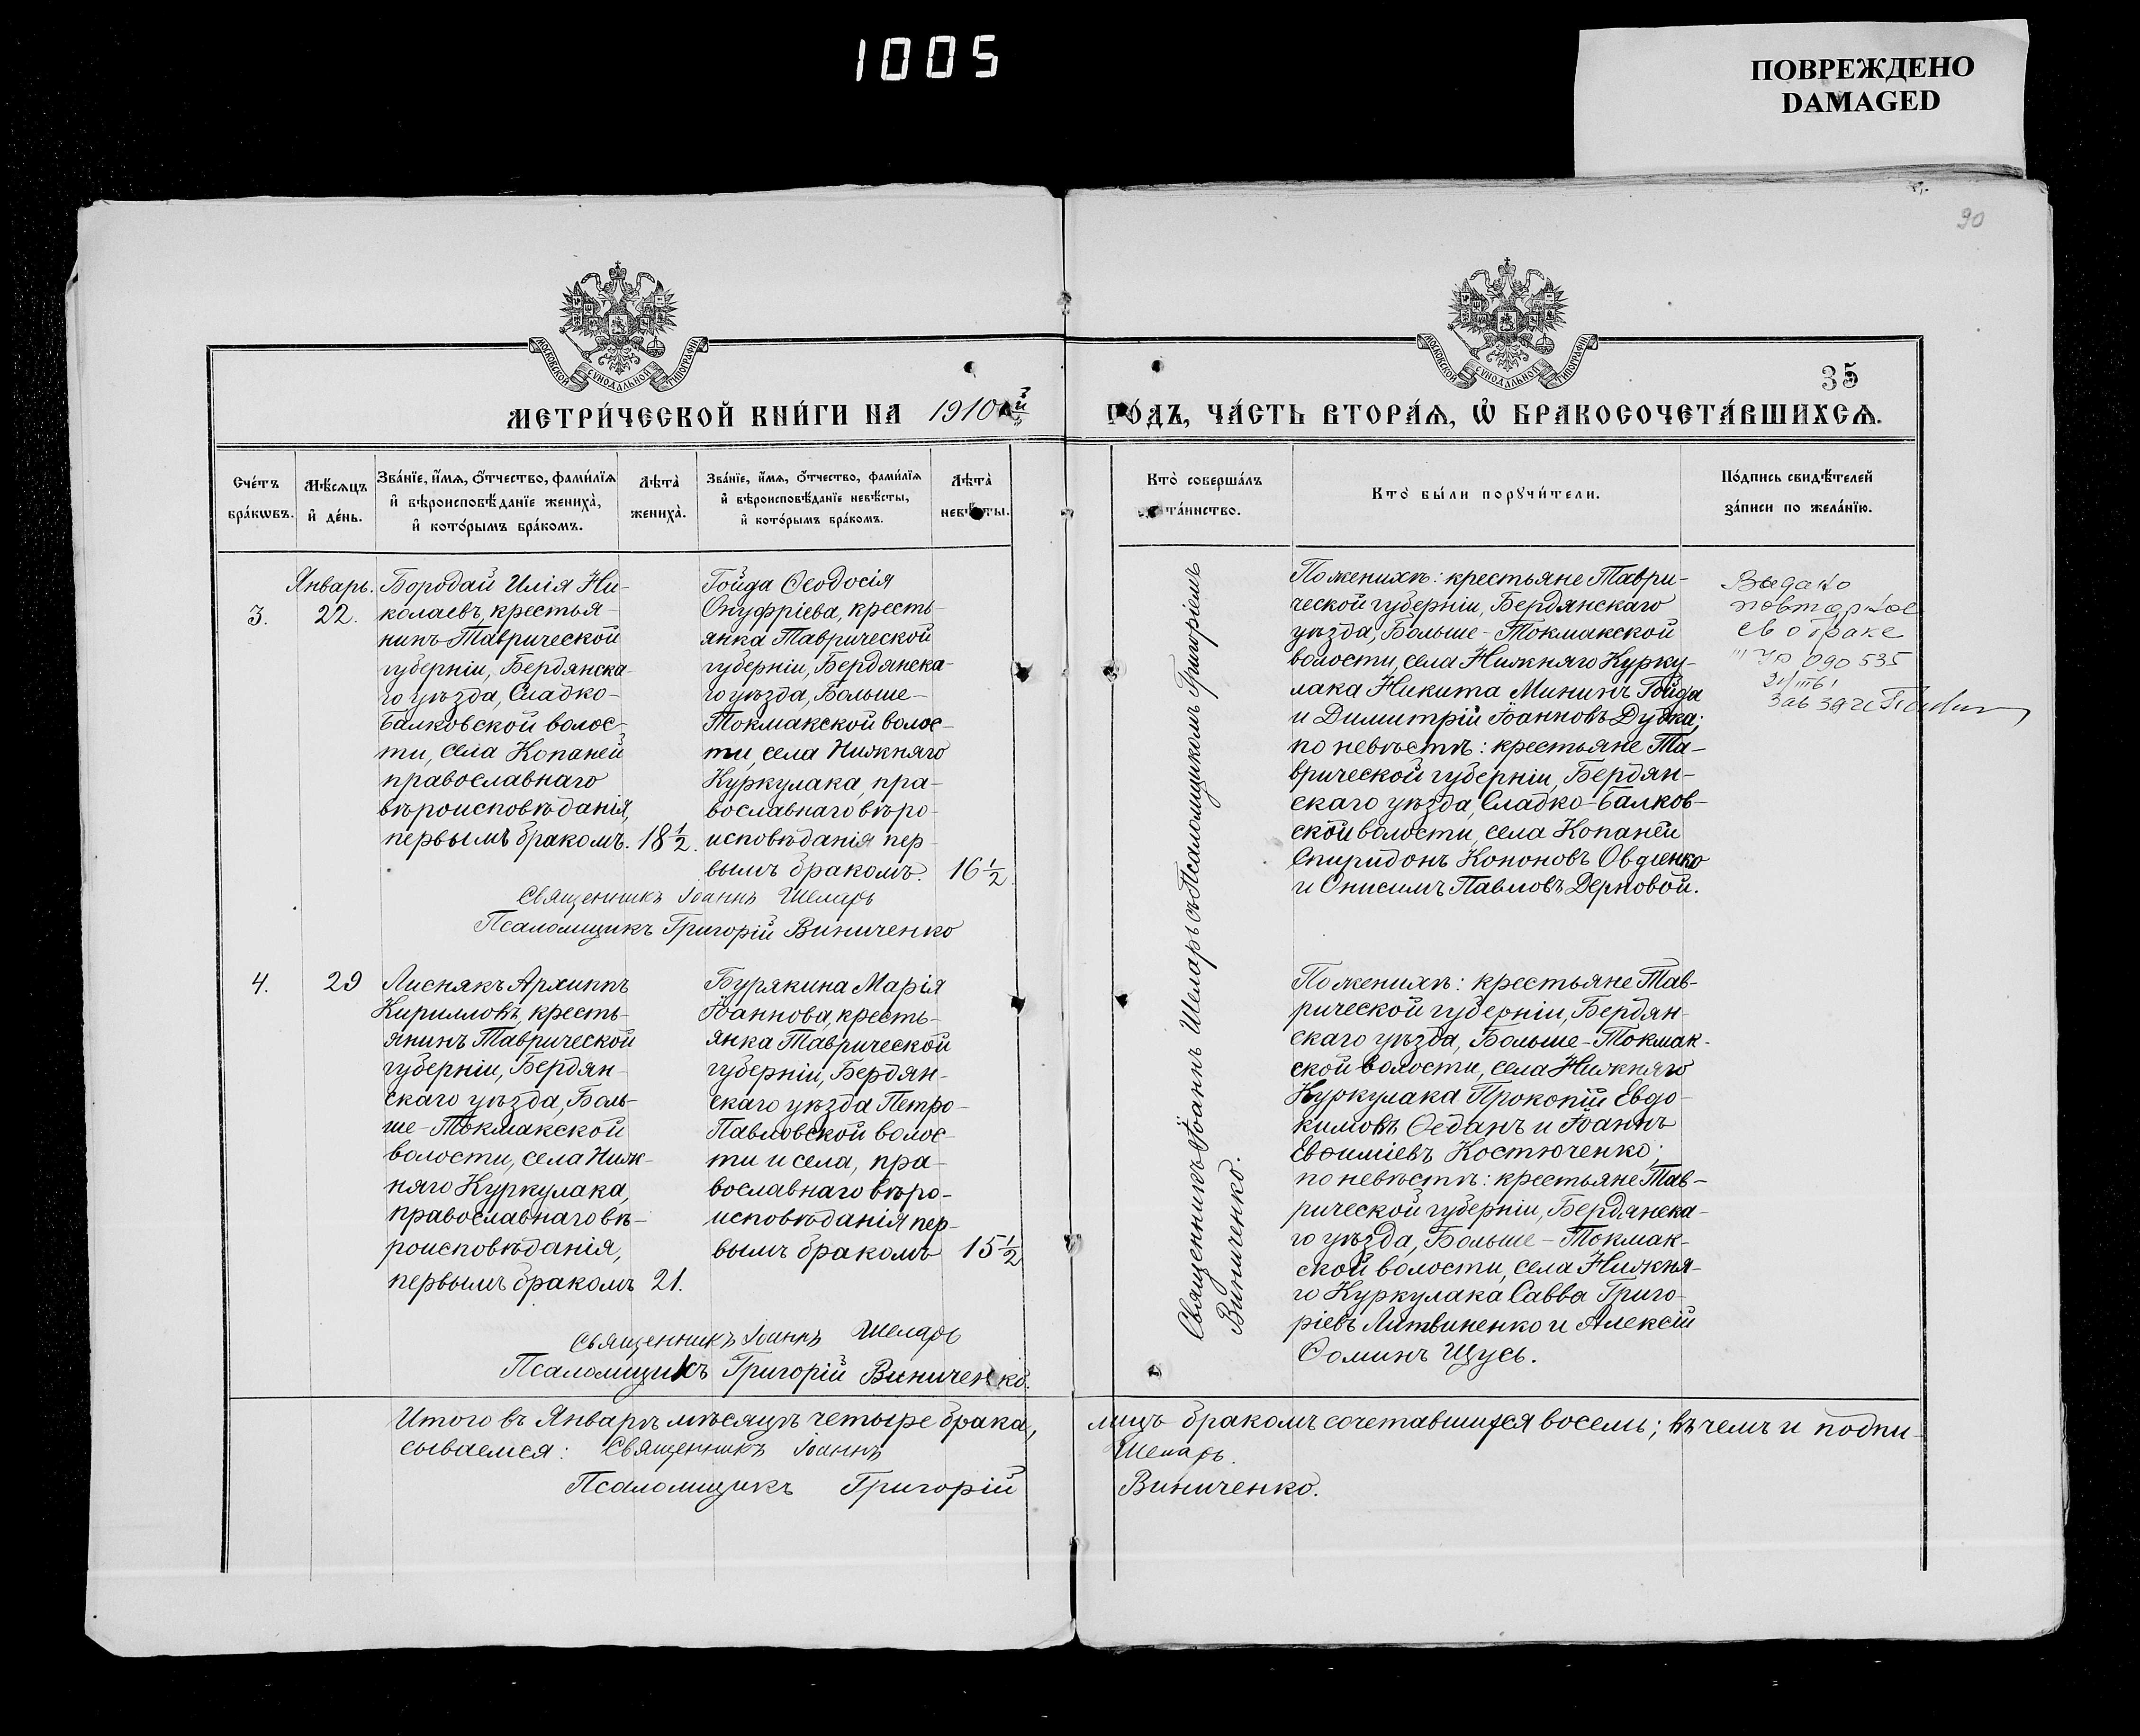 1005
ПОВРЕЖДЕНО
DAMAGED
90
МОСКОВСКОЙ СѴНОДАЛЬНОЙ ТИПОГРАФІИ
МОСКОВСКОЙ СѴНОДАЛЬНОЙ ТИПОГРАФІИ
35
МЕТРИ́ЧЕСКОЙ КНИ́ГИ НА 1910й ГО́ДЪ, ЧА́СТЬ ВТОРА́Ѧ, Ѽ БРАКОСОЧЕТА́ВШИХСѦ.
Сче́тъ
бра́кѡвъ.
Мѣ́сѧцъ
и҆ де́нь.
Зва́нїе, и҆́мѧ, ѻ҆́тчество, фами́лїѧ
и҆ вѣроисповѣ́данїе жениха̀,
и҆ кото́рымъ бра́комъ.
Лѣта̀
жениха̀.
Зва́нїе, и҆́мѧ, ѻ҆́тчество, фами́лїѧ
и҆ вѣроисповѣ́данїе невѣ́сты,
и҆ кото́рымъ бра́комъ.
Лѣта̀
невѣ́сты.
Кто̀ соверша́лъ
та́инство.
Кто̀ бы́ли порꙋчи́тели.
По́дпись свидѣ́телей
за́писи по жела́нїю.
3.
Январь.
22.
Бородай Илія Ни-
колаевъ, крестья-
нинъ Таврической
губерніи, Бердянска-
го уѣзда, Сладко-
Балковской волос-
ти, села Копаней
православнаго
вѣроисповѣданія,
первымъ бракомъ. 18 1/2.
Гойда Ѳеодосія
Онуфріева, кресть-
янка Таврической
губерніи, Бердянска-
го уѣзда, Больше-
Токмакской волос-
ти, села Нижняго
Куркулака, пра-
вославнаго вѣро-
исповѣданія пер-
вымъ бракомъ. 16 1/2.
Священникъ Іоаннъ Шеларь
Псаломщикъ Григорій Виниченко
Священникъ Іоаннъ Шеларь съ Псаломщикомъ Григоріемъ
Виниченко.
По женихѣ: крестьяне Таври-
ческой губерніи, Бердянскаго
уѣзда, Больше-Токмакской
волости, села Нижняго Курку-
лака Никита Мининъ Гойда
и Димитрій Іоанновъ Дудка;
по невѣстѣ: крестьяне Та-
врической губерніи, Бердян-
скаго уѣзда, Сладко-Балков-
ской волости, села Копаней
Спиридонъ Кононовъ Овдіенко
и Онисимъ Павловъ Дерновой.
Выдано
повторное
св о браке
УР 090535
Зав загс
4.
29
Лиснякъ Архиппъ
Кирилловъ, кресть-
янинъ Таврической
губерніи, Бердян-
скаго уѣзда, Боль-
ше-Токмакской
волости, села Ниж-
няго Куркулака,
православнаго вѣ-
роисповѣданія,
первымъ бракомъ 21.
Бурякина Марія
Іоаннова, кресть-
янка Таврической
губерніи, Бердян-
скаго уѣзда Петро-
Павловской волос-
ти и села, пра-
вославнаго вѣро-
исповѣданія пер-
вымъ бракомъ 15 1/2
Священникъ Іоаннъ Шеларь
Псаломщикъ Григорій Виниченко.
По женихѣ: крестьяне Тав-
рической губерніи, Бердян-
скаго уѣзда, Больше-Токмак-
ской волости, села Нижняго
Куркулака Прокопій Евдо-
кимовъ Ѳеданъ и Іоаннъ
Евѳиміевъ Костюченко;
по невѣстѣ: крестьяне Тав-
рической губерніи, Бердянска-
го уѣзда, Больше-Токмак-
ской волости, села Нижня-
го Куркулака Савва Григо-
ріевъ Литвиненко и Алексій
Ѳоминъ Щусь.
Итого въ Январѣ мѣсяцѣ четыре брака, лицъ бракомъ сочетавшихся восемь; въ чемъ и подпи-
сываемся: Священникъ Іоаннъ Шеларь.
Псаломщикъ Григорій Виниченко.